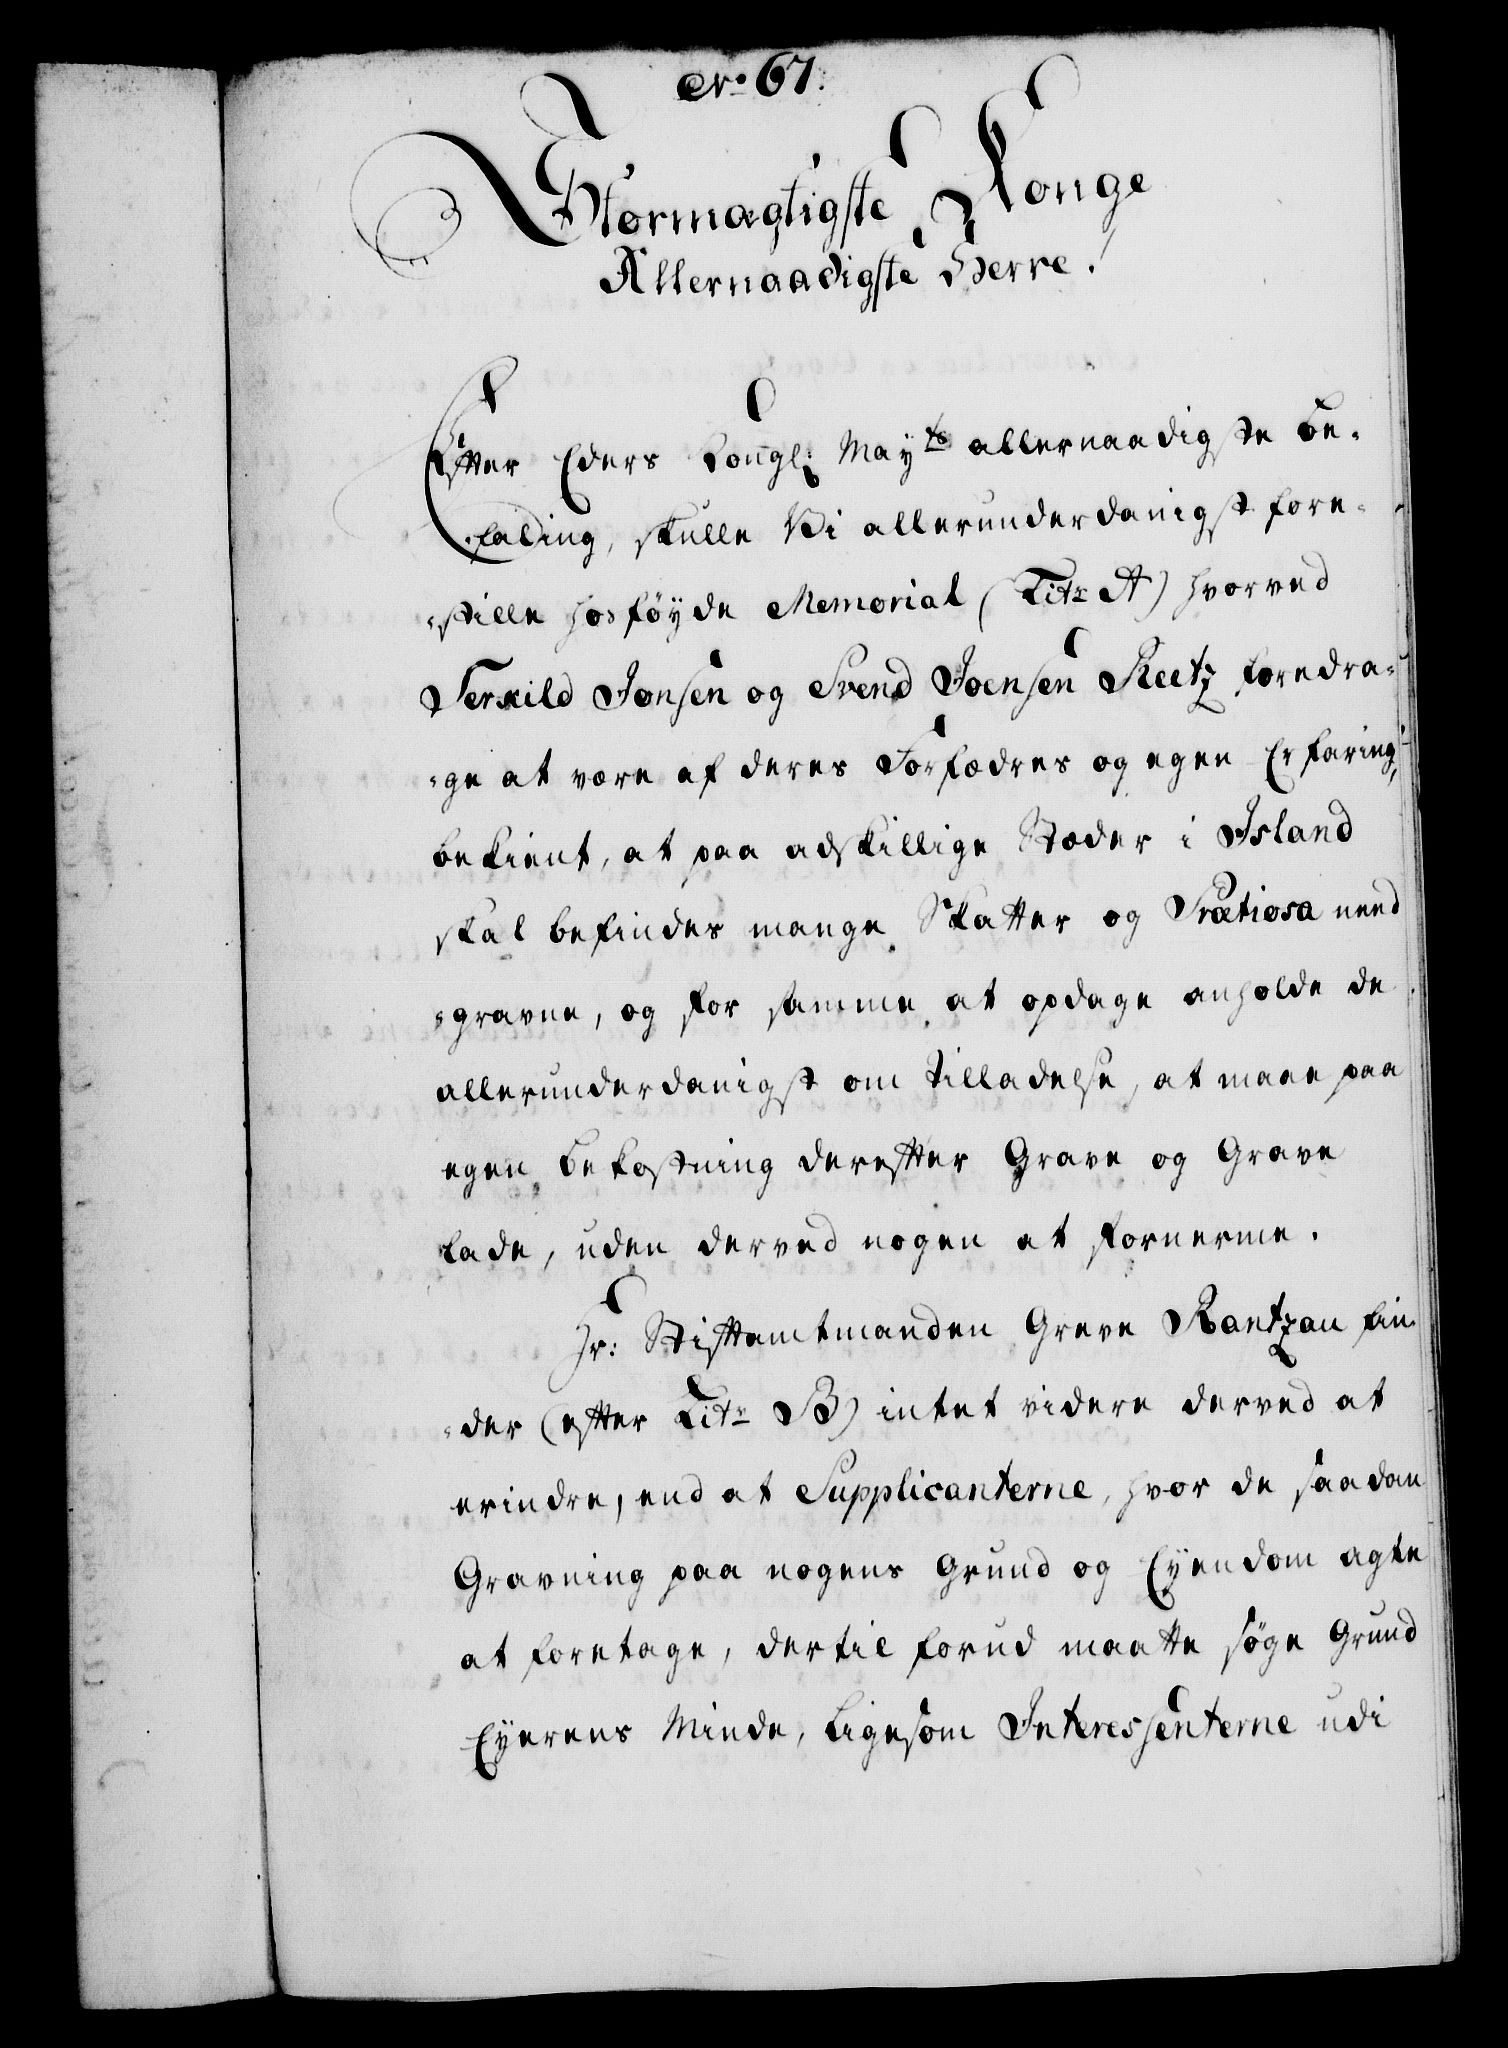 No. 67.
Stormægtigste Konge
Allernaadigste Herre!
Efter Eders Kongl: Mayts allernaadigste Be-
-faling, skulle Vi allerunderdanigst fore-
-stille hosföyde Memorial (Litr A) hvorved
Terkild Jonsen og Svend Joensen Reetz foredra-
-ge at være af deres Forfædres og egen Erfaring,
bekient, at paa adskillige Stæder i Island
skal befindes mange Skatter og Prætiosa need
-gravne, og for samme at opdage anholde de
allerunderdanigst om Tilladelse, at maae paa
egen Bekostning derefter Grave og Grave
lade, uden derved nogen at fornerme.
Hr: Stiftamtmanden Greve Rantzau fin-
-der (efter Litr B) intet videre derved at
erindre, end at Supplicanterne, hvor de saadan
Gravning paa nogens Grund og Eyendom agte
at foretage, dertil forud maatte söge Grund
Eyerens Minde, ligesom Interessenterne udi